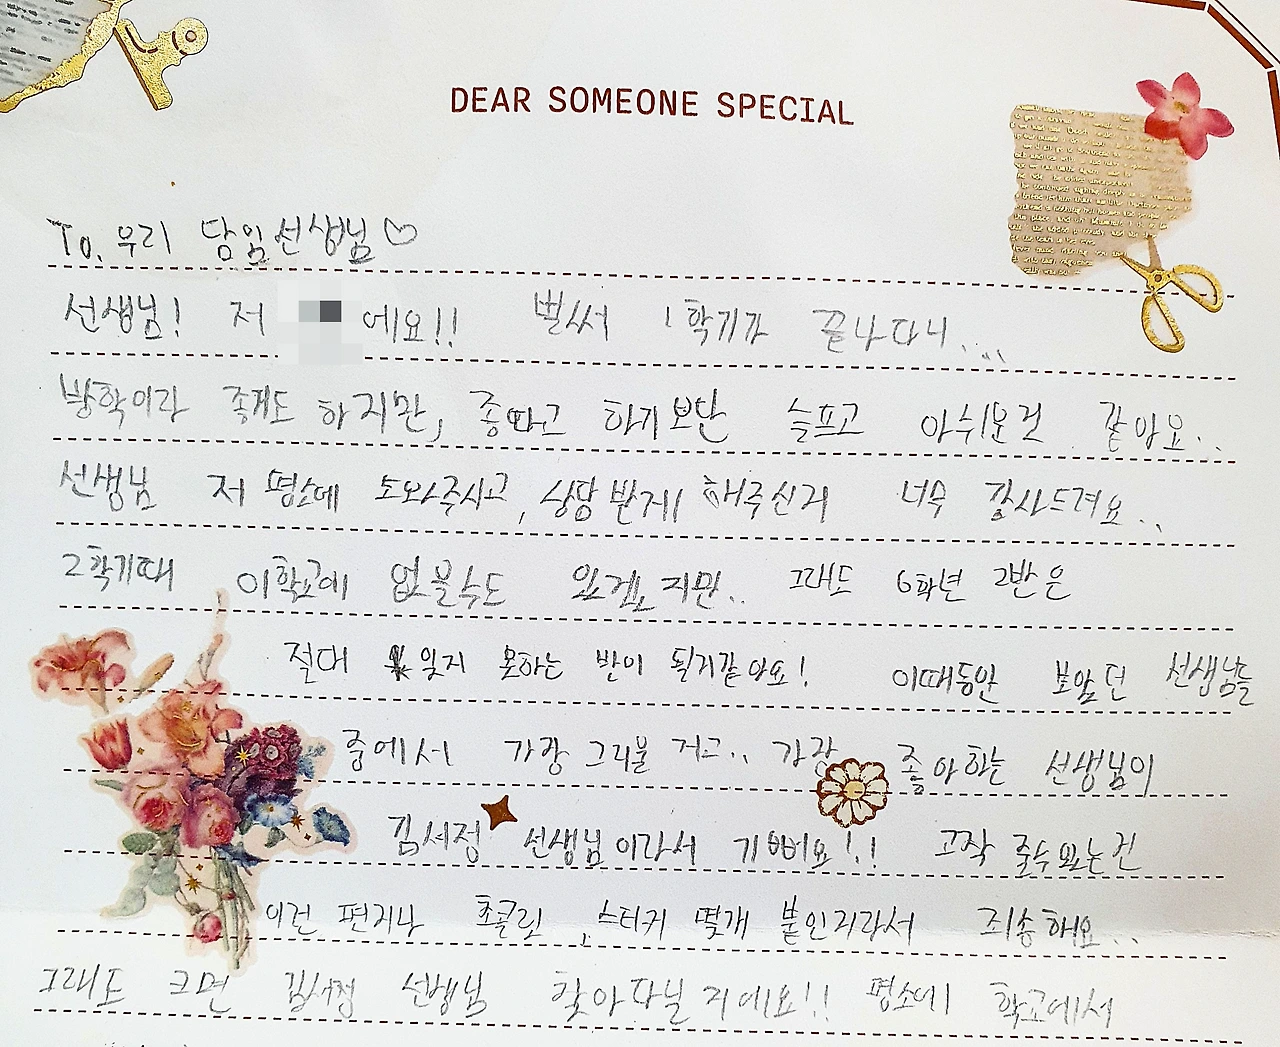 DEAR SOMEONE SPECIAL
To. 우리 담임선생님♡
선생님! 저 에요!! 벌써 1학기가 끝나다니....
방학이라 좋기도 하지만, 좋다고 하기보단 슬프고 아쉬운것 같아요..
선생님 저 평소에 도와주시고, 상담 받게 해주신거 너무 감사드려요..
2학기때 이학교에 없을수도 있겠지만.. 그래도 6학년 2반은
절대 잊지 못하는 반이 될거같아요! 이때동안 보았던 선생님들
중에서 가장 그리울 거고.. 가장 좋아하는 선생님이
김서정 선생님이라서 기뻐요!! 고작 줄수있는건
이런 편지나 초콜릿, 스티커 몇개 붙인거라서 죄송해요...
그래도 크면 김서정 선생님 찾아다닐거에요!! 평소에 학교에서